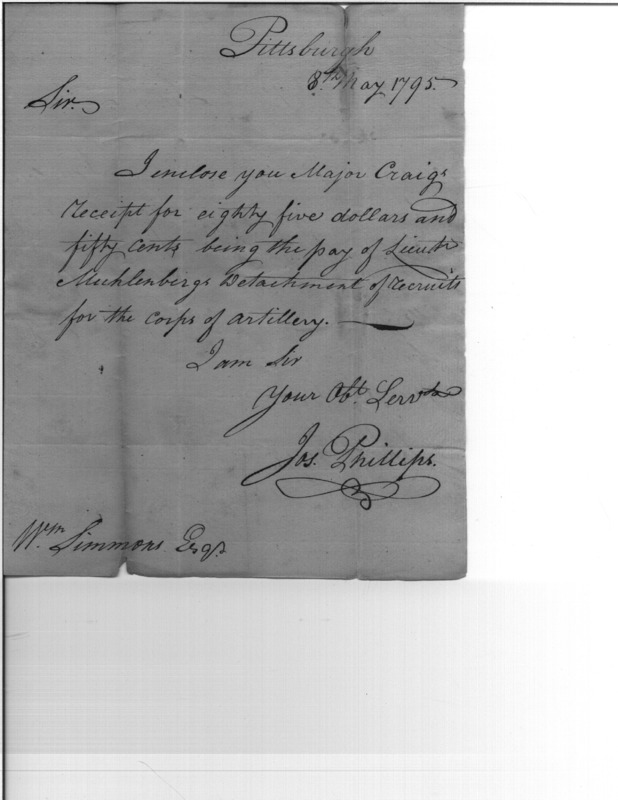 Pittsburgh
8th May 1795.
Sir.
I enclose you Major Craigs
receipt for eighty five dollars and
fifty cents being the pay of Lieut.
Muhlenbergs Detachment of recruits
for the corps of artillery.
I am Sir
Your Obt. Servt.
Jos. Phillips.
Wm Simmons Esqr.